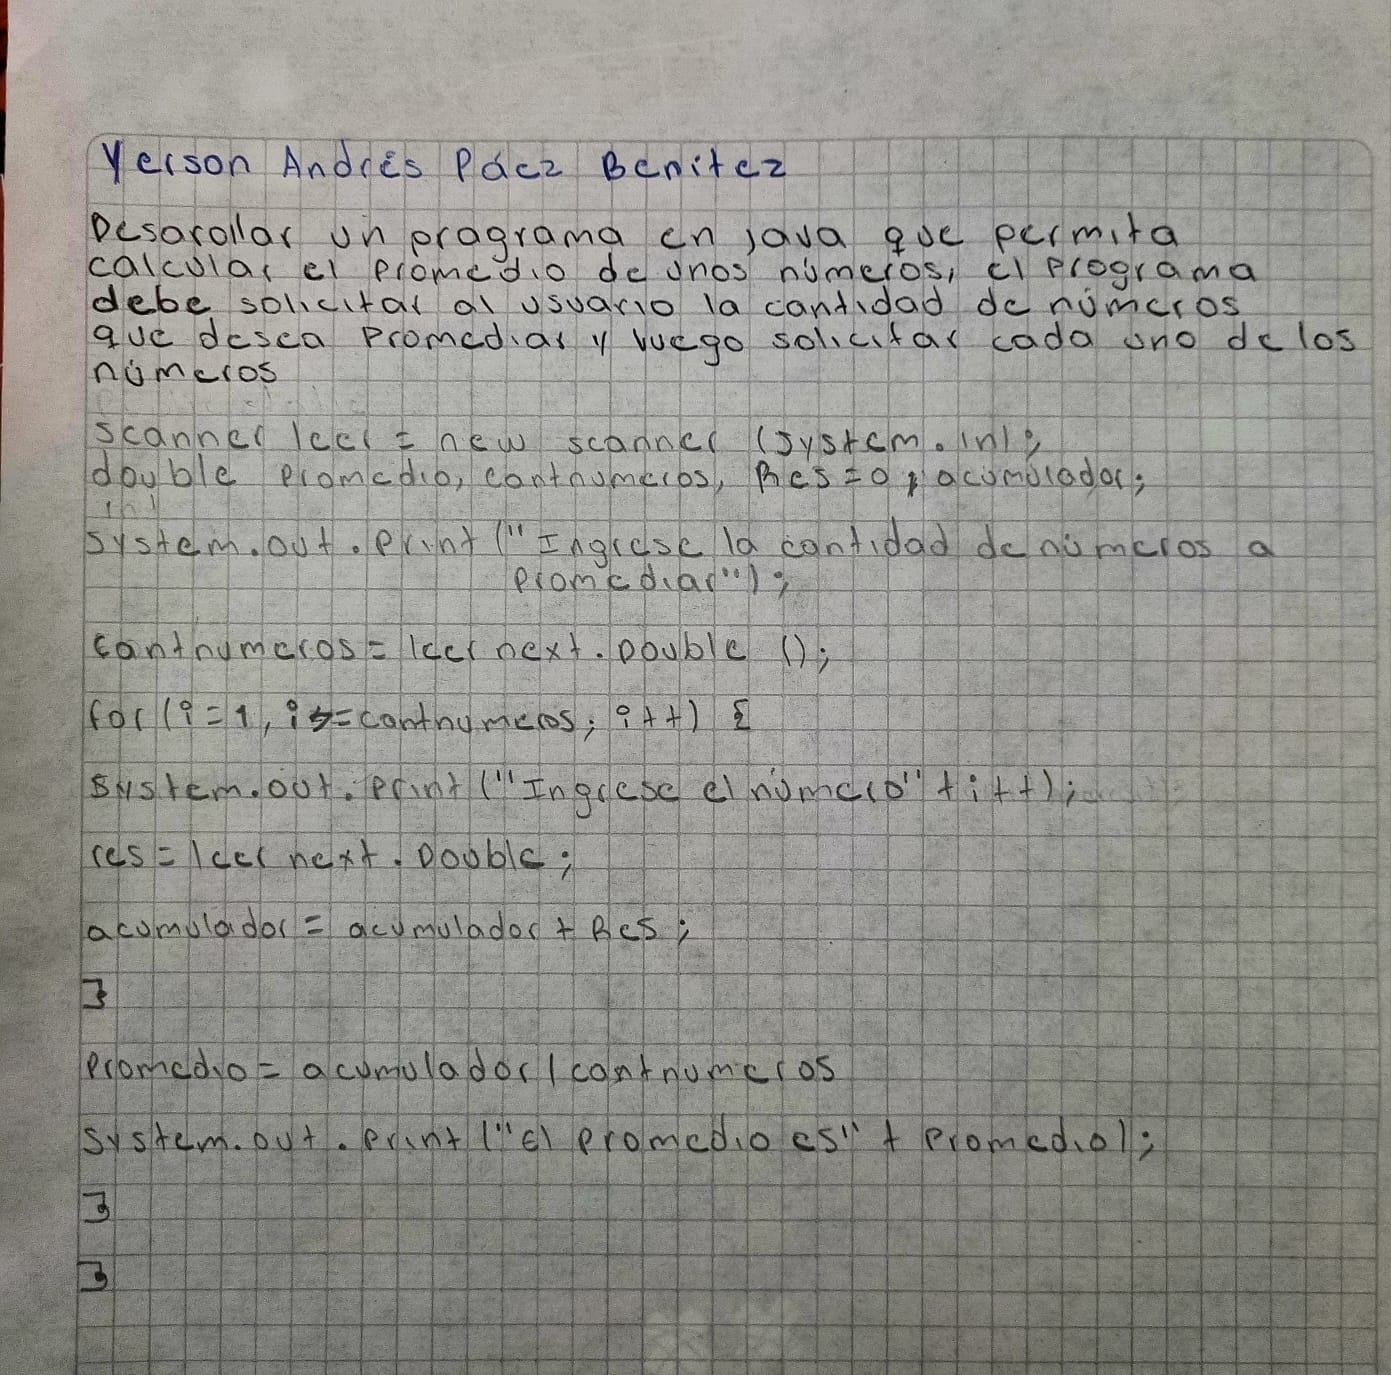 Yerson Andrés Páez Benitez
Desarollar un programa en java que permita
calcular el promedio de unos números, el programa
debe solicitar al usuario la cantidad de números
que desea promediar y luego solicitar cada uno de los
números
scanner leer = new scanner (system.in);
double promedio, cantnumeros, Res=0, acumulador;
system.out.print ("Ingrese la cantidad de números a
promediar");
cantnumeros = leer next.Double ();
for (i=1, i<=cantnumeros; i++) {
system.out.print ("Ingrese el número" + i++);
res = leer next.Double;
acumulador = acumulador + Res;
}
promedio = acumulador / cantnumeros
system.out.print ("el promedio es" + promedio);
}
}